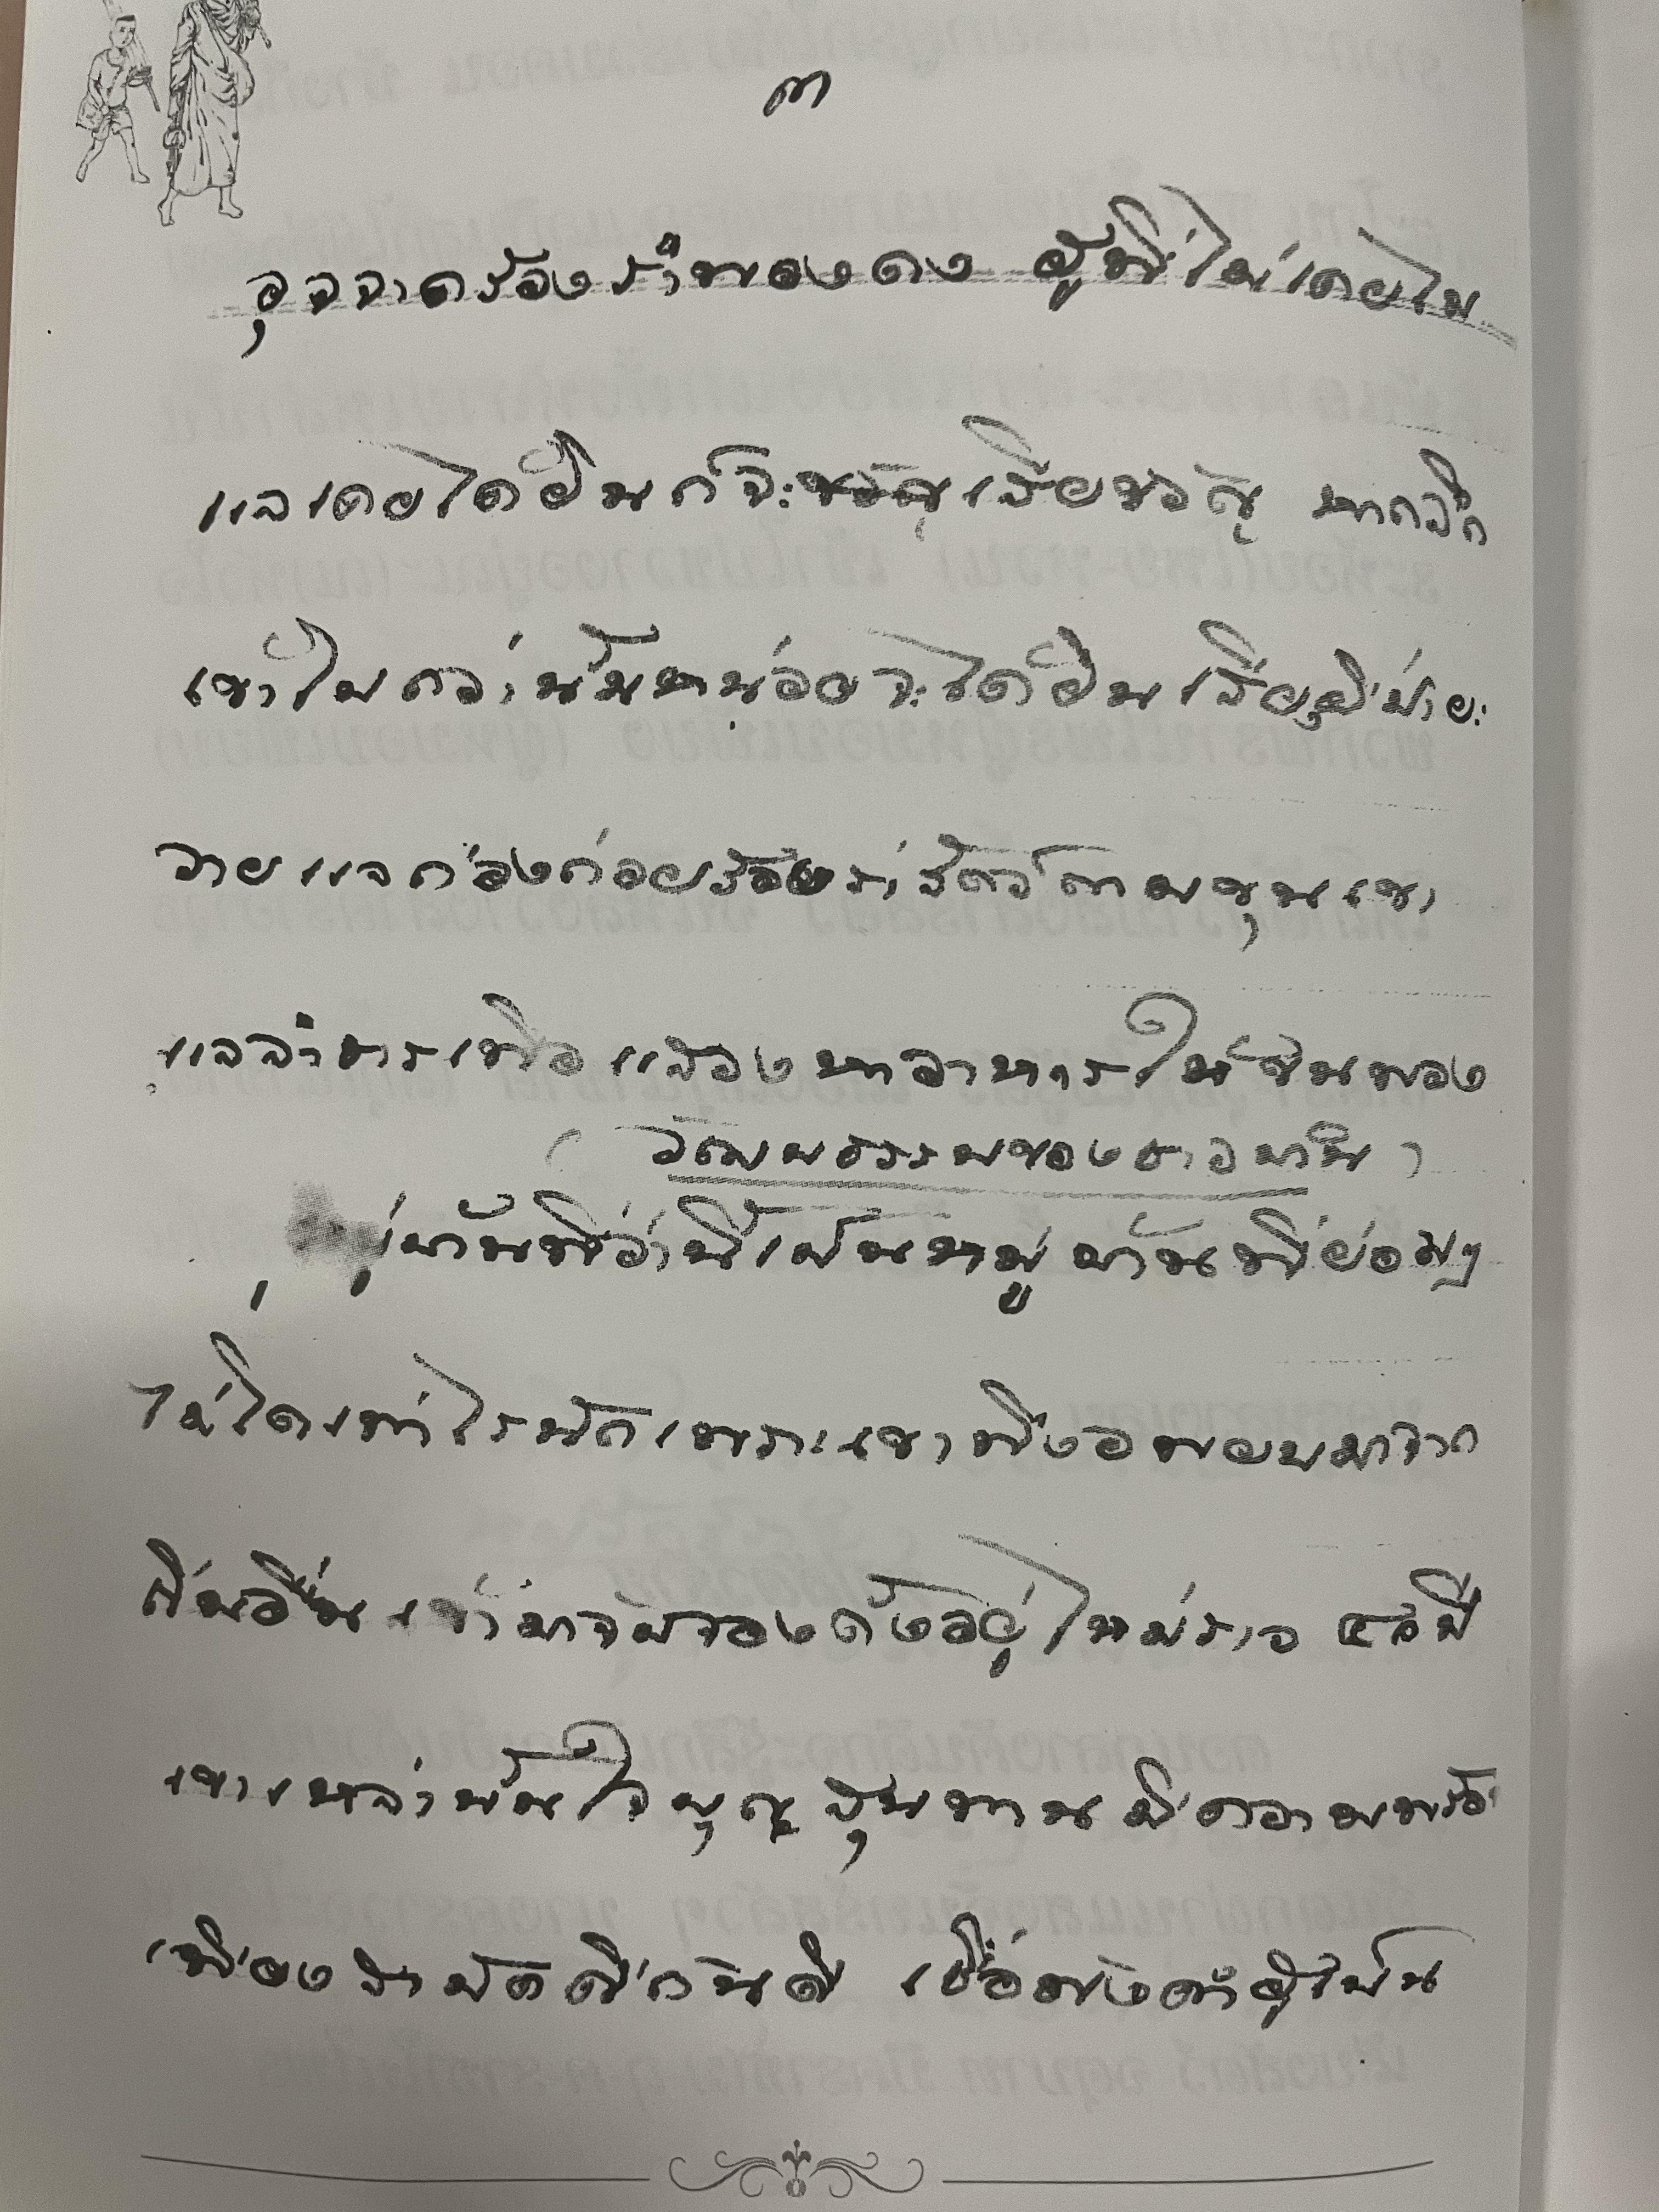 ๓
อุจจาดร้องรำพองดง ผู้ที่ไม่เคยไป
แลเคยได้ยินก็จะขวัญเสียขวัญ หากลึก
เข้าไปกว่านั้นหน่อยจะได้ยินเสียงผีป่า
วายแลก่องก่อยร้องร่ำ สัตว์ตามขุนเขา
แลลำธารเพื่อแสองหาอาหารใส่ชีนพอง
( วัฒนธรรมของชาวบ้าน )
หมู่บ้านที่ว่านี้เป็นหมู่บ้านที่ย่อมๆ
ไม่โตเท่าไรนักเพราะเขาพึ่งอพยบมาจาก
ถิ่นอื่นเข้ามาจับจองตั้งอยู่ใหม่ราว ๔๕ปี
เขาเหล่านั้นใจบุญสุนทานมีความพร้อ
เพียงสามัคคีกันดี เชื่อฟังคำผู้เป็น